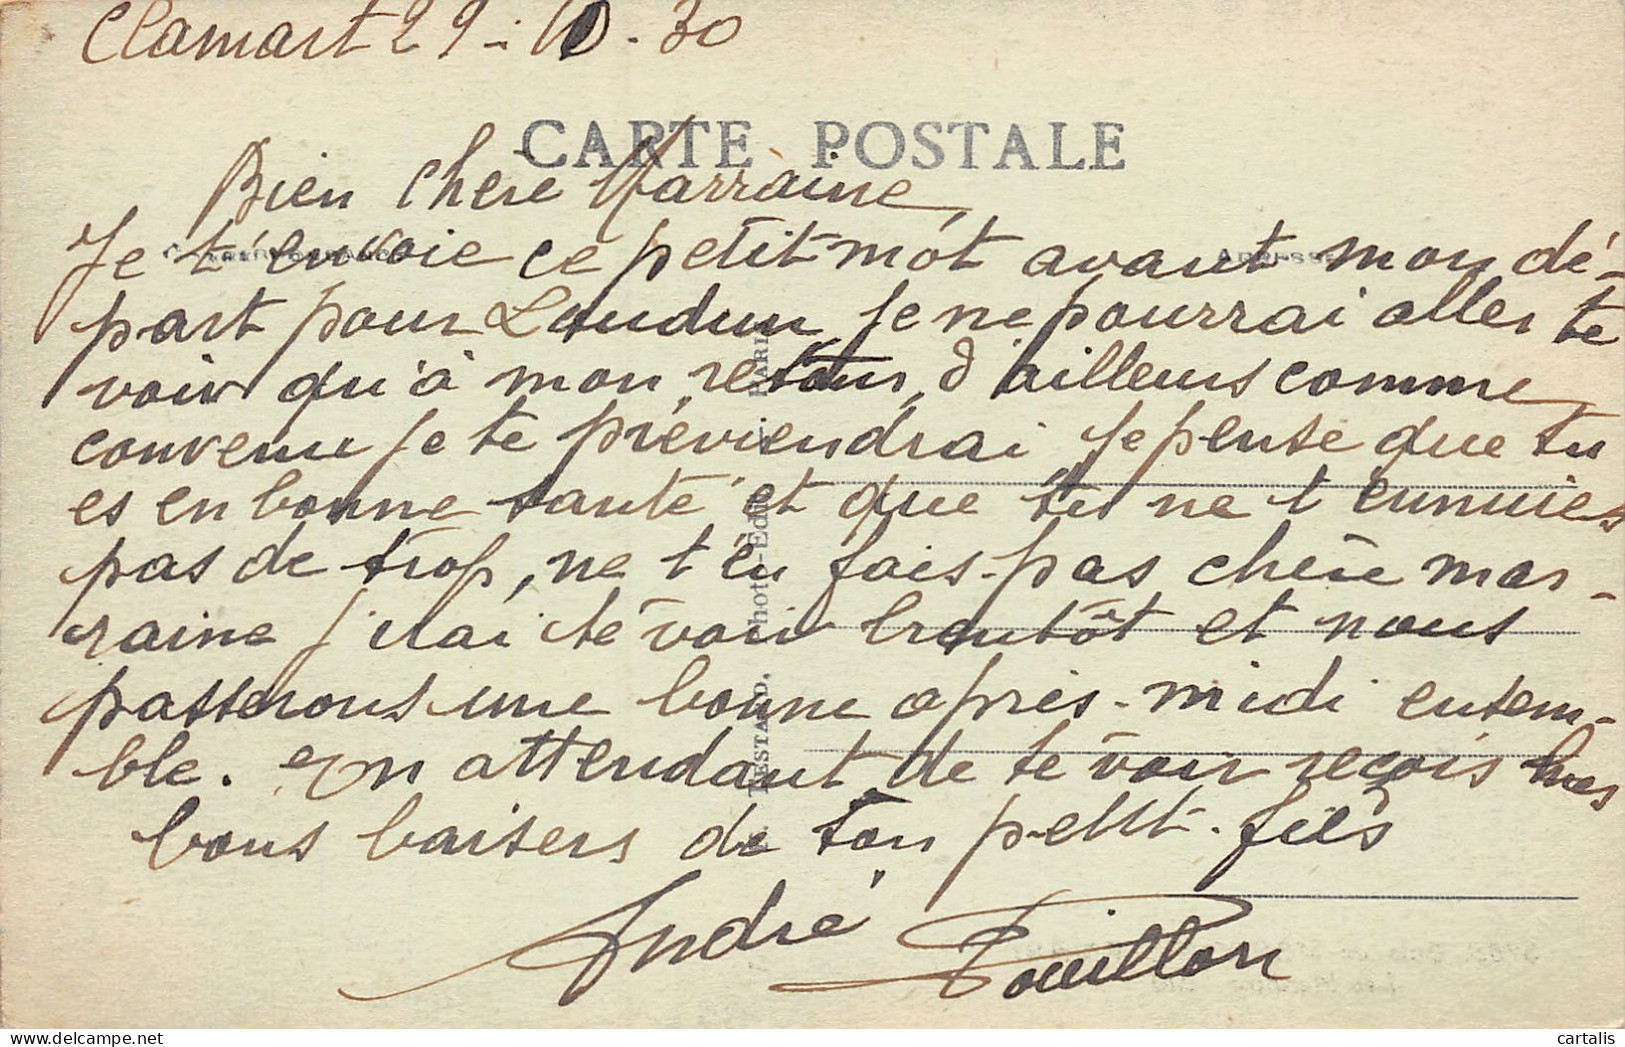 Clamart 29-10-30
CARTE POSTALE
Bien chère Marraine,
Je t'envoie ce petit mot avant mon dé-
part pour Loudun, je ne pourrai aller te
voir qu'à mon retour, d'ailleurs comme
convenu je te préviendrai je pense que tu
es en bonne santé et que tu ne t'ennuies
pas de trop, ne t'en fais pas chère mar-
raine j'irai te voir bientôt et nous
passerons une bonne après-midi ensem-
ble. En attendant de te voir reçois mes
bons baisers de ton petit-fils
André Pouillon
cartalis